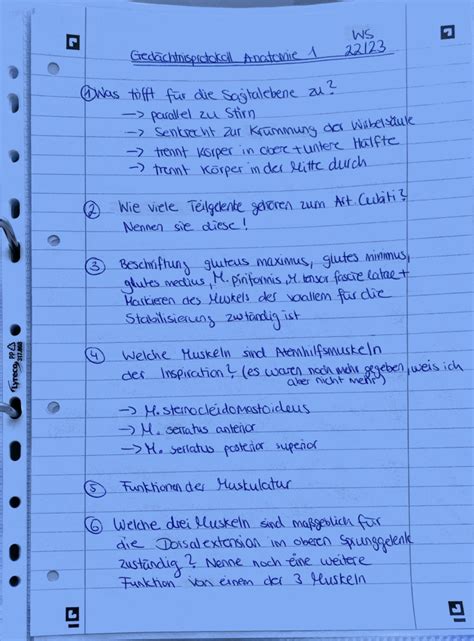 WS
Gedächtnisprotokoll Anatomie 1 22/23
① Was trifft für die Sagitalebene zu?
→ parallel zu Stirn
→ Senkrecht zur Krümmung der Wirbelsäule
→ trennt Körper in obere + untere Hälfte
→ trennt Körper in der Mitte durch
② Wie viele Teilgelenke gehören zum Art. Cubiti?
Nennen sie diese!
③ Beschriftung gluteus maximus, glutes minimus,
glutes medius, M. piriformis, M. tensor fascie latae +
Markieren des Muskels der voallem für die
Stabilisierung zuständig ist
④ Welche Muskeln sind Atemhilfsmuskeln
der Inspiration? (es waren noch mehr gegeben, weis ich
aber nicht mehr)
→ M. sternocleidomastoideus
→ M. serratus anterior
→ M. serratus posterior superior
⑤ Funktionen der Muskulatur
⑥ Welche drei Muskeln sind maßgeblich für
die Dorsalextension im oberen Sprunggelenk
zuständig? Nenne noch eine weitere
Funktion von einem der 3 Muskeln